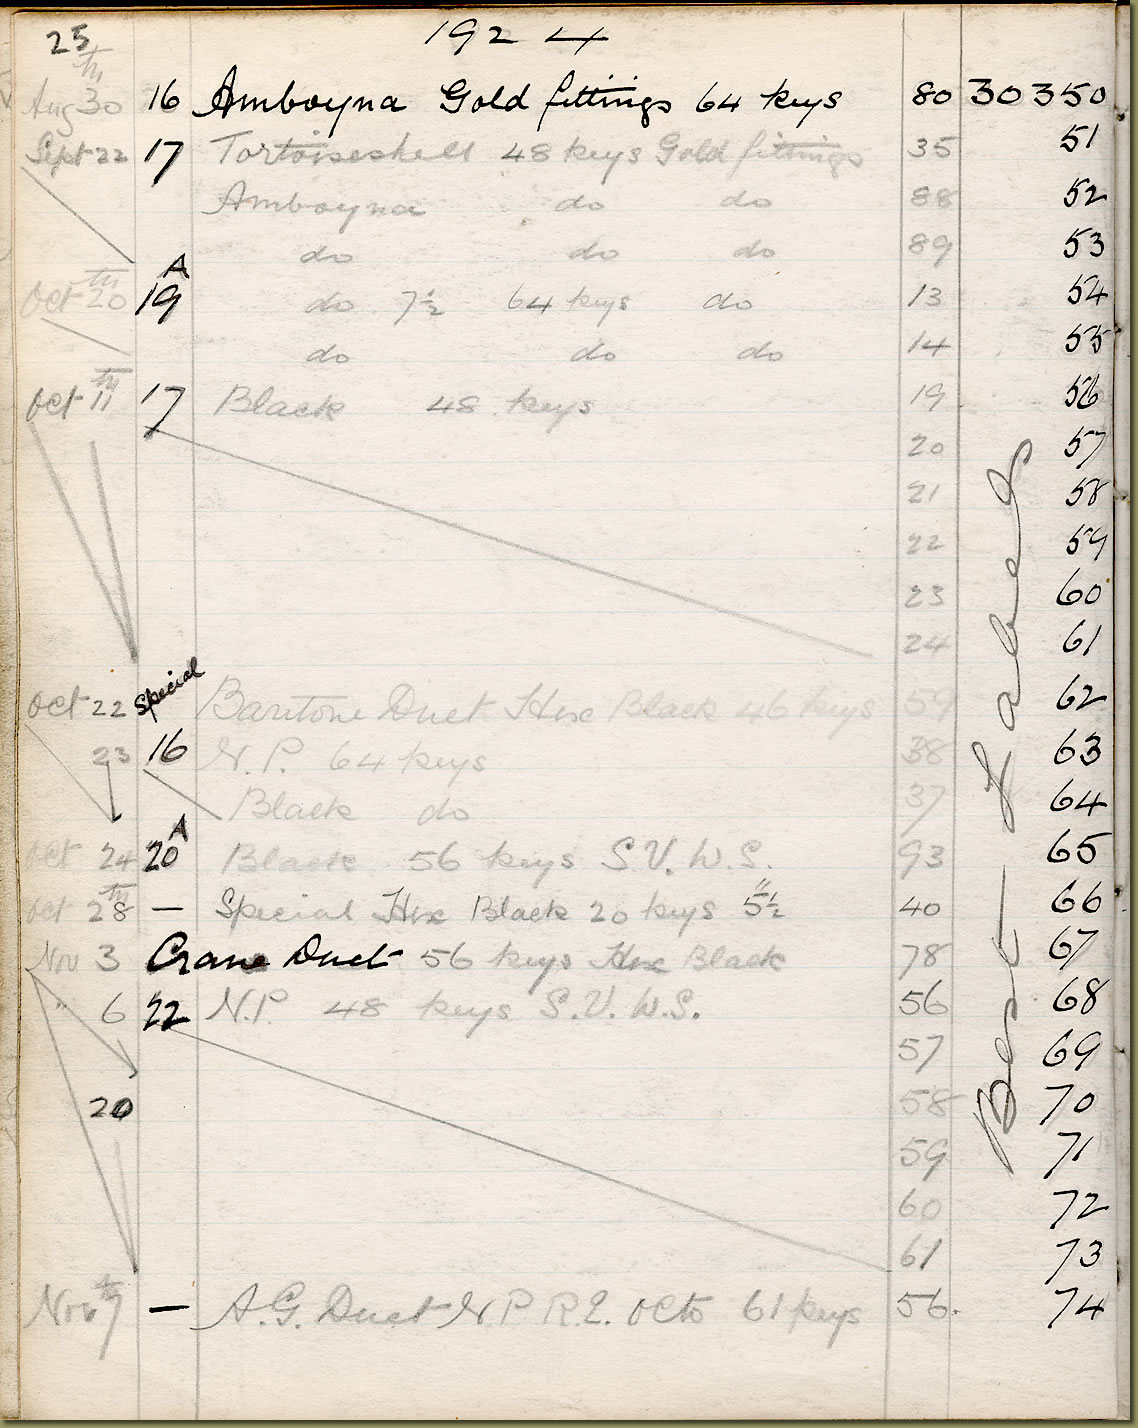 25
1924
Aug 30th 16 Amboyna Gold fittings 64 keys 80 30350
Sept 22 17 Tortoiseshell 48 keys Gold fittings 35 51
Amboyna do do 88 52
do do do 89 53
Oct 20th 19A do 7½ 64 keys do 13 54
do do do 14 55
Oct 11th 17 Black 48 keys 19 56
20 57
21 58
22 59
23 60
24 61
Oct 22 Special Baritone Duet Hex Black 46 keys 59 62
23 16 N.P. 64 keys 38 63
Black do 37 64
Oct 24 20A Black 56 keys S.V.W.S. 93 65
Oct 28th — Special Hex Black 20 keys 5½" 40 66
Nov 3 Crane Duet 56 keys Hex Black 78 67
" 6 22 N.P. 48 keys S.V.W.S. 56 68
57 69
20 58 70
59 71
60 72
61 73
Nov 7th — A.G. Duet N.P. R.E. Octo 61 keys 56. 74
Best Labels